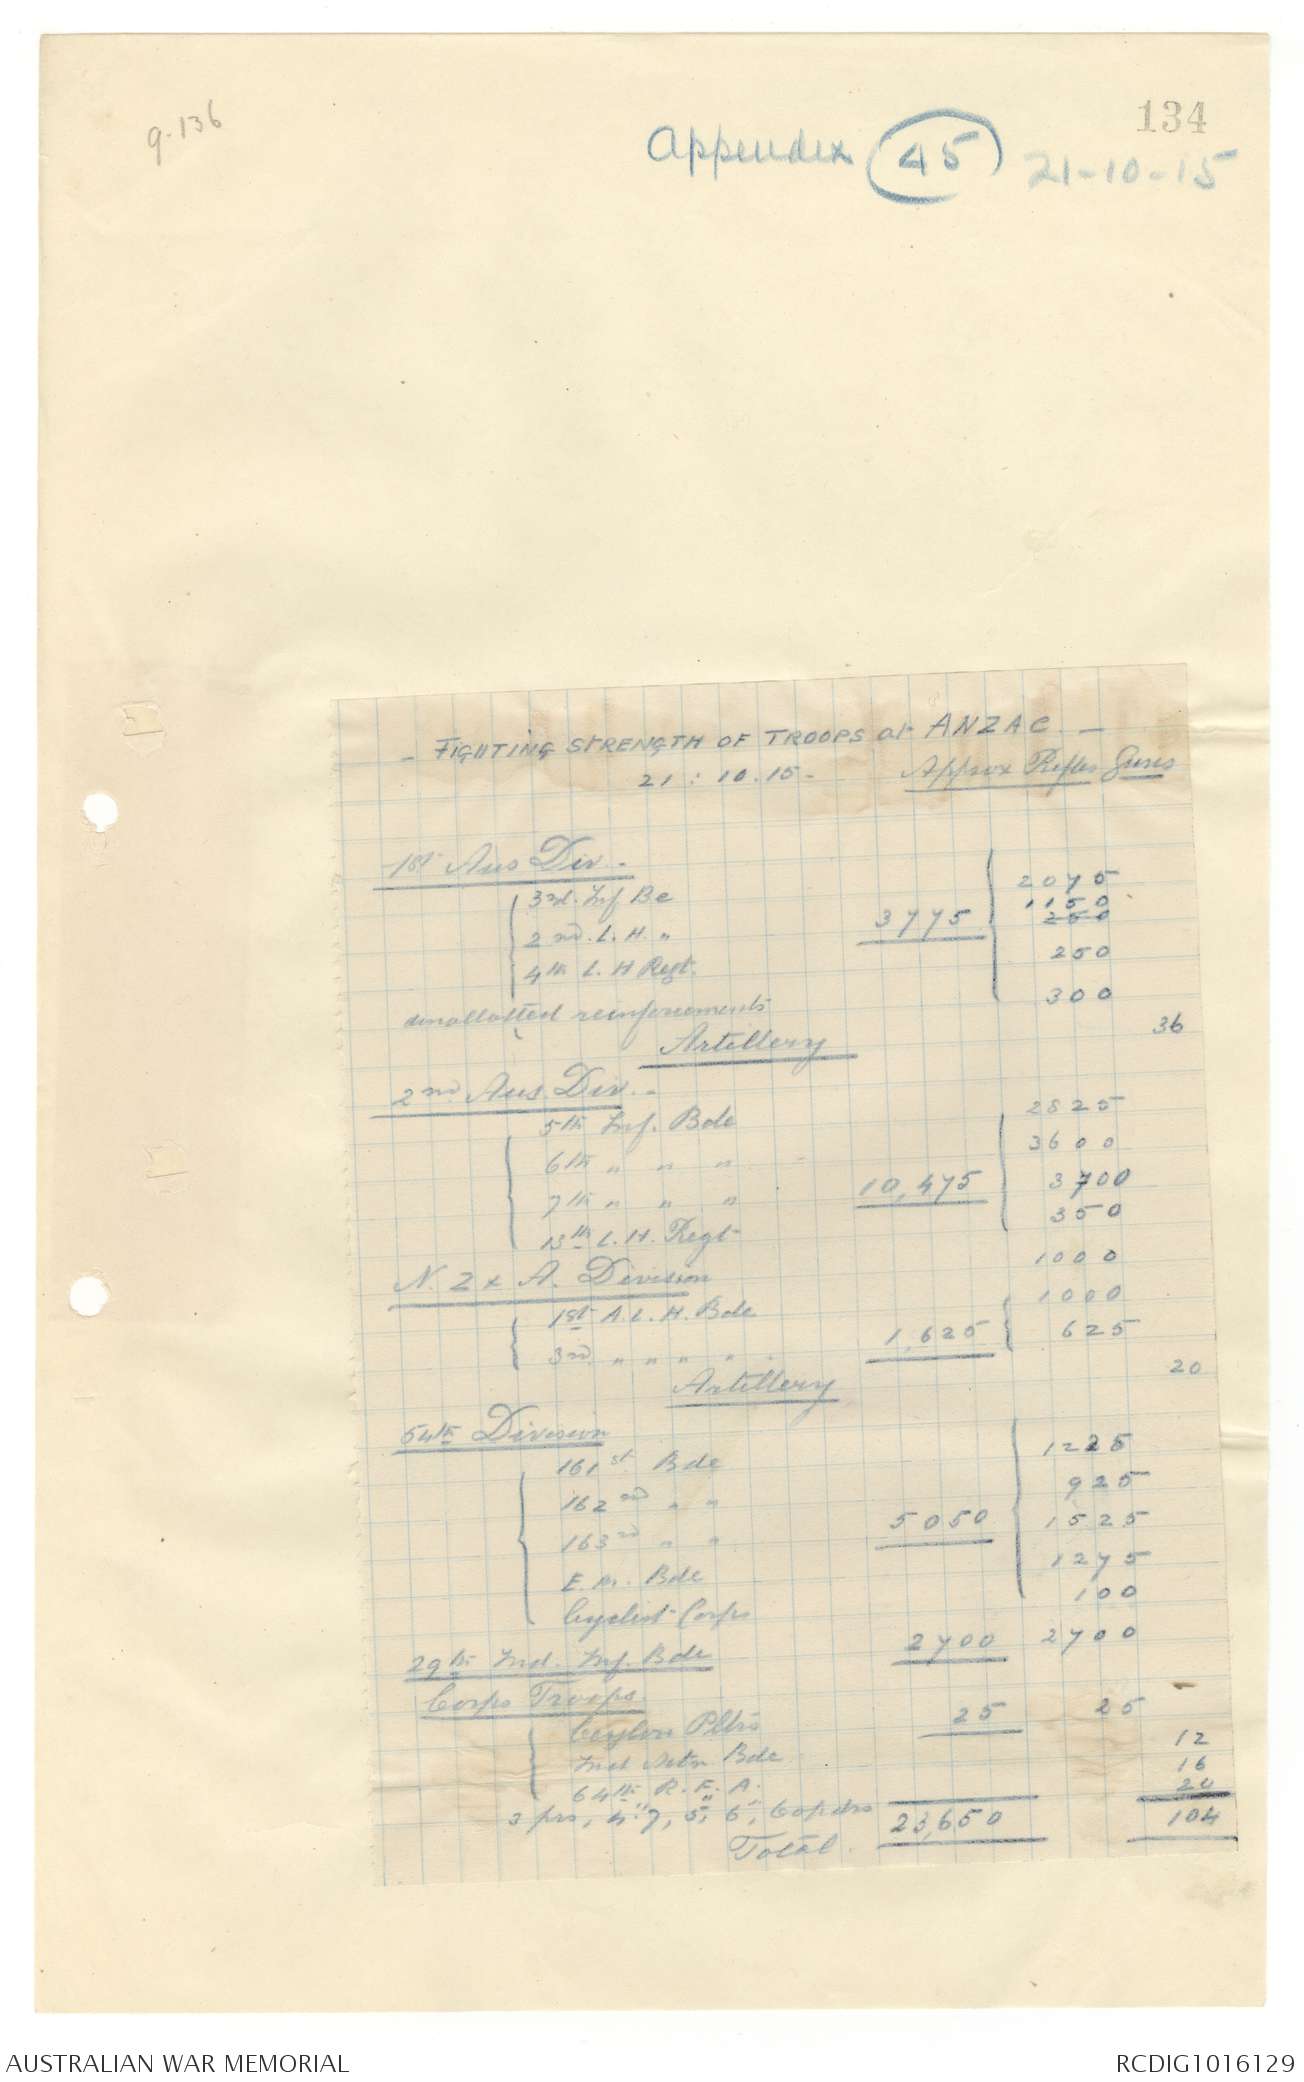 9.136
134
Appendix 45 21-10-15
- FIGHTING STRENGTH OF TROOPS at ANZAC -
21:10.15- Approx Rifles Guns
1st Aus Div -
3rd. Inf Be 2075
1150
3775 250
2nd. L. H. "
4th L. H Regt. 250
unallotted reinforcements 300
Artillery 36
2nd Aus. Div. -
5th Inf. Bde 2825
6th " " " 3600
7th " " " 10,475 3700
13th L. H. Regt 350
N. Z & A. Division 1000
1st A. L. H. Bde 1000
3rd " " " " 1,625 625
Artillery 20
54th Division
161st Bde 1225
162nd " " 925
163rd " " 5050 1525
E. M. Bde 1275
Cyclist Corps 100
29th Ind. Inf. Bde 2700 2700
Corps Troops.
Ceylon Pltrs 25 25
Ind Mtn Bde 12
64th R. F. A. 16
3 prs, 4."7, 5", 6", 20
23,650 104
Total.
AUSTRALIAN WAR MEMORIAL RCDIG1016129